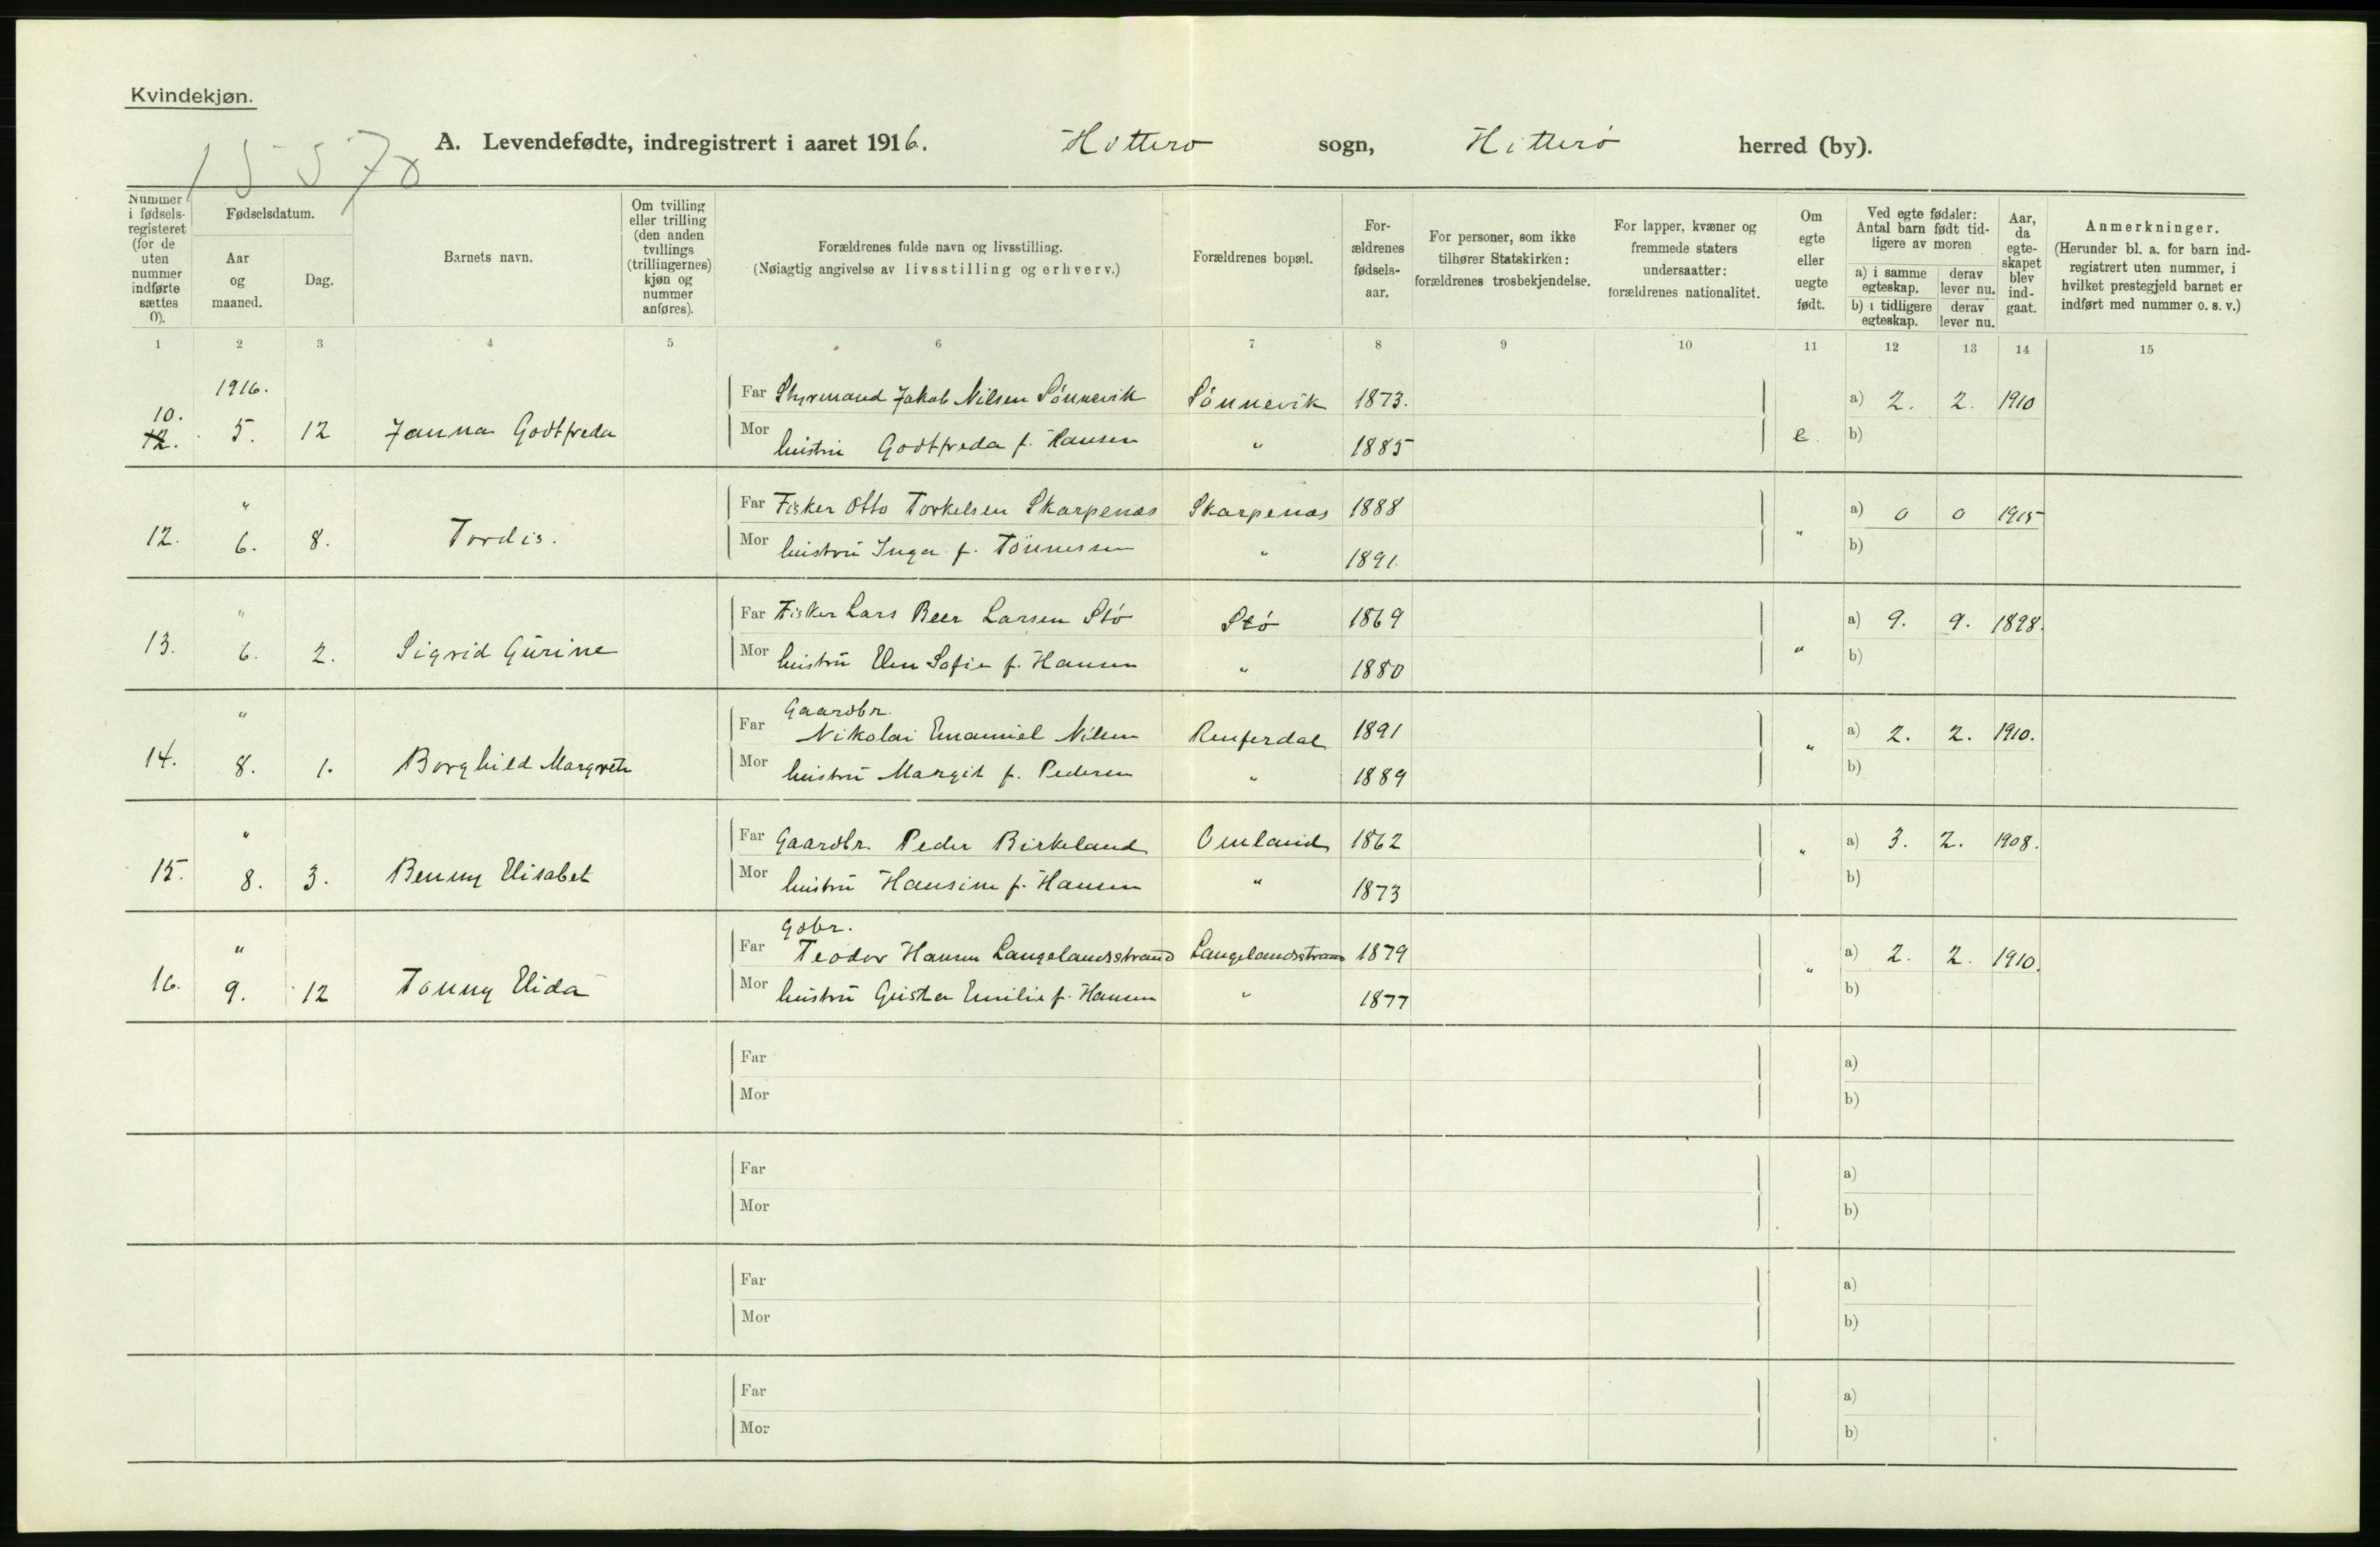 Kvindekjøn.
A. Levendefødte, indregistrert i aaret 1916. Hitterø sogn, Hitterø herred (by).
1557
Nummer i fødsels-registeret (for de uten nummer indførte sættes 0).
Fødselsdatum.
Aar og maaned.
Dag.
Barnets navn.
Om tvilling eller trilling (den anden tvillings (trillingernes) kjøn og nummer anføres).
Forældrenes fulde navn og livsstilling.
(Nøiagtig angivelse av livsstilling og erhverv.)
Forældrenes bopæl.
For-ældrenes fødsels-aar.
For personer, som ikke tilhører Statskirken: forældrenes trosbekjendelse.
For lapper, kvæner og fremmede staters undersaatter: forældrenes nationalitet.
Om egte eller uegte født.
Ved egte fødsler: Antal barn født tid-ligere av moren
a) i samme egteskap.
derav lever nu.
b) i tidligere egteskap.
derav lever nu.
Aar, da egte-skapet blev ind-gaat.
Anmerkninger.
(Herunder bl. a. for barn ind-registrert uten nummer, i hvilket prestegjeld barnet er indført med nummer o. s. v.)
1 2 3 4 5 6 7 8 9 10 11 12 13 14 15
1916.
Far Styrmand Jakob Nilsen Sønnevik Sønnevik 1873. a) 2. 2. 1910
10.
12. 5. 12 Janna Godtfreda
Mor hustru Godtfreda f. Hansen " 1885 e. b)
"
Far Fisker Otto Torkelsen Skarpenes Skarpenes 1888 a) 0 0 1915
12. 6. 8. Tordis.
Mor hustru Inga f. Tønnessen " 1891. " b)
"
Far Fisker Lars Beer Larsen Stø Stø 1869 a) 9. 9. 1898.
13. 6. 2. Sigrid Gurine
Mor hustru Elen Sofie f. Hansen " 1880 " b)
"
Gaardbr.
Far Nikolai Emanuel Nilsen 1891 a) 2. 2. 1910.
14. 8. 1. Borghild Margrete
Mor hustru Margit f. Pedersen " 1889 " b)
"
Far Gaardbr. Peder Birkeland Omland 1862 a) 3. 2. 1908.
15. 8. 3. Benny Elisabet
Mor hustru Hansine f. Hansen " 1873 " b)
"
Gdbr.
Far Teodor Hansen Langelandsstrand Langelandsstrand 1879 a) 2. 2. 1910.
16. 9. 12 Tonny Elida
Mor hustru Gusta Emilie f. Hansen " 1877 " b)
Far a)
Mor b)
Far a)
Mor b)
Far a)
Mor b)
Far a)
Mor b)